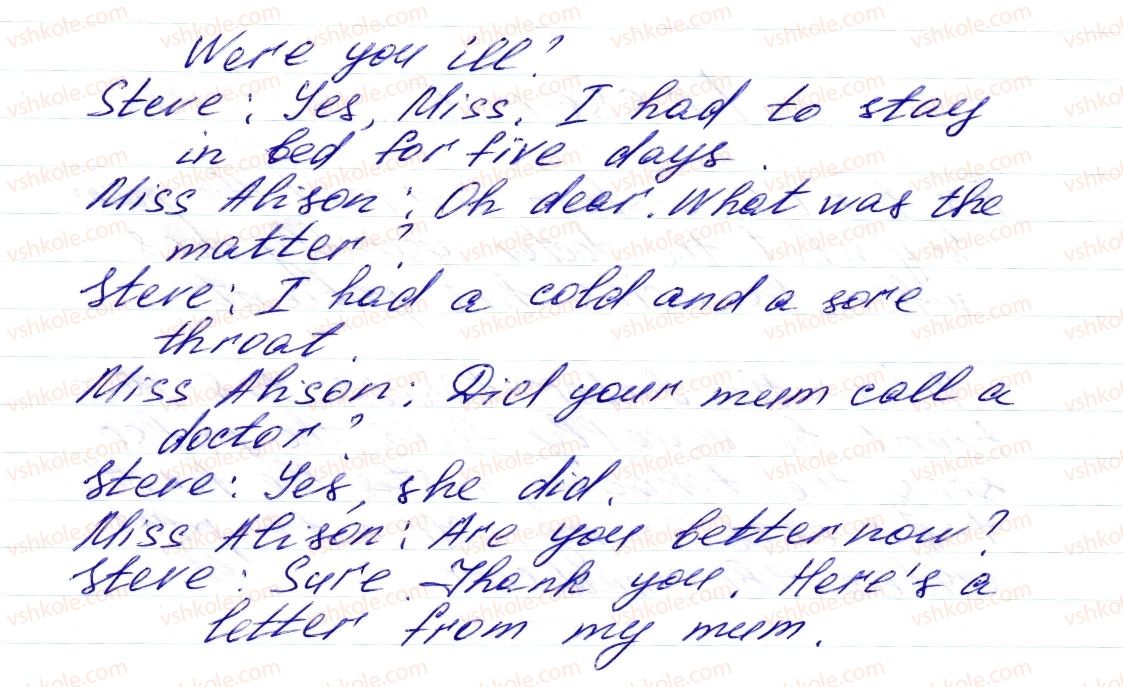 Were you ill?
Steve: Yes, Miss. I had to stay
in bed for five days.
Miss Alison: Oh dear. What was the
matter?
Steve: I had a cold and a sore
throat.
Miss Alison: Did your mum call a
doctor?
Steve: Yes, she did.
Miss Alison: Are you better now?
Steve: Sure. Thank you. Here's a
letter from my mum.